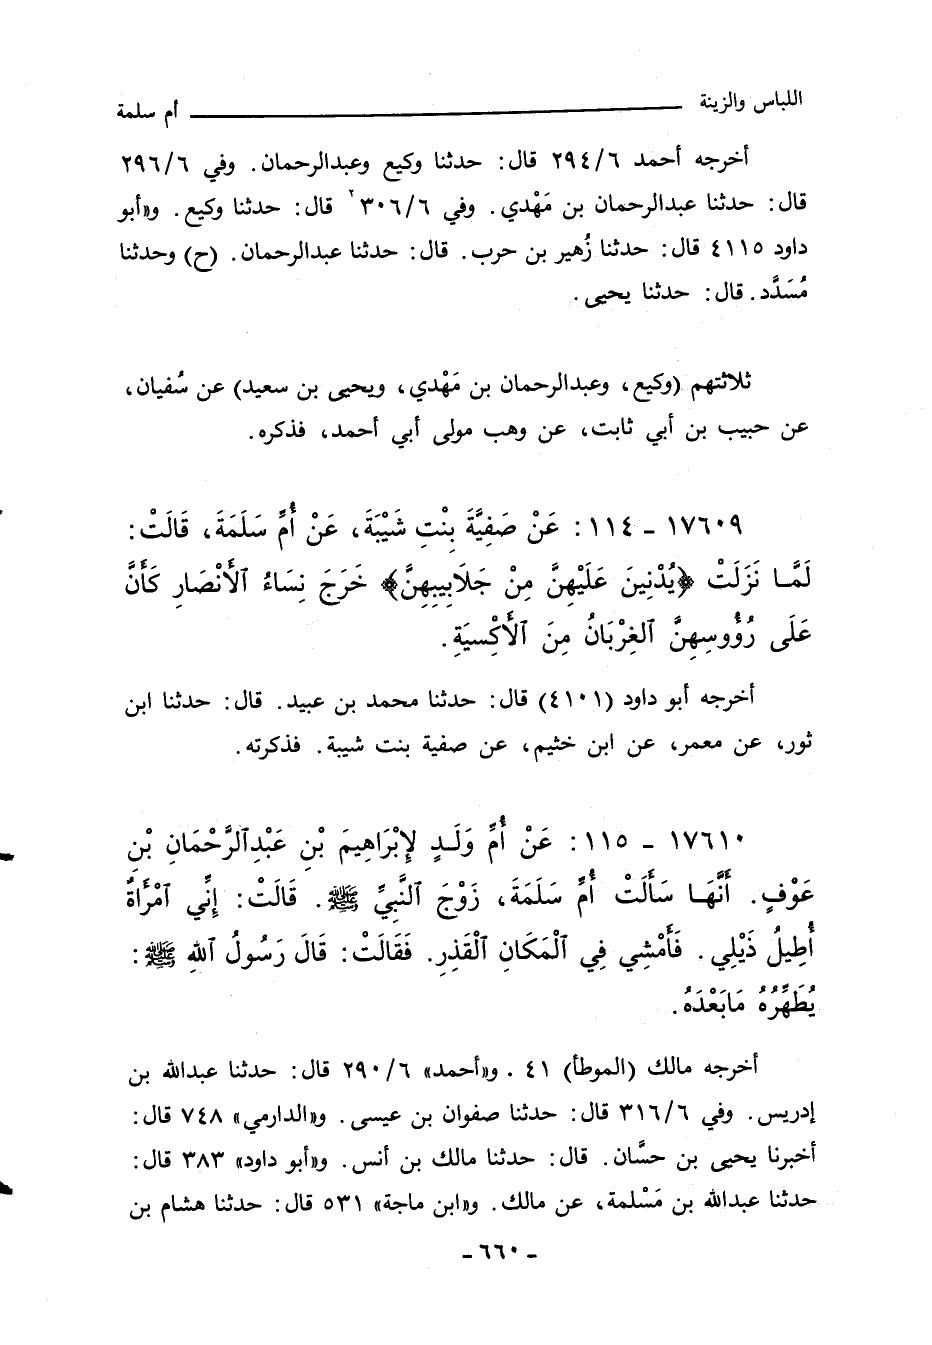 اللباس والزينة ــــــــــــــــــــــــــــــــ أم سلمة
أخرجه أحمد ٢٩٤/٦ قال: حدثنا وكيع وعبدالرحمان. وفي ٢٩٦/٦
قال: حدثنا عبدالرحمان بن مَهْدي. وفي ٣٠٦/٦ ٢ قال: حدثنا وكيع. و«أبو
داود ٤١١٥ قال: حدثنا زُهير بن حرب. قال: حدثنا عبدالرحمان. (ح) وحدثنا
مُسَدَّد. قال: حدثنا يحيى.
ثلاثتهم (وكيع، وعبدالرحمان بن مَهْدي، ويحيى بن سعيد) عن سُفيان،
عن حبيب بن أبي ثابت، عن وهب مولى أبي أحمد، فذكره.
١٧٦٠٩ - ١١٤: عَنْ صَفِيَّةَ بِنْتِ شَيْبَةَ، عَنْ أُمِّ سَلَمَةَ، قَالَتْ:
لَمَّا نَزَلَتْ ﴿يُدْنِينَ عَلَيْهِنَّ مِنْ جَلَابِيبِهِنَّ﴾ خَرَجَ نِسَاءُ ٱلأَنْصَارِ كَأَنَّ
عَلَى رُؤُوسِهِنَّ ٱلغِرْبَانُ مِنَ ٱلأَكْسِيَةِ.
أخرجه أبو داود (٤١٠١) قال: حدثنا محمد بن عبيد. قال: حدثنا ابن
ثور، عن معمر، عن ابن خثيم، عن صفية بنت شيبة. فذكرته.
١٧٦١٠ - ١١٥: عَنْ أُمِّ وَلَدٍ لإِبْرَاهِيمَ بْنِ عَبْدِٱلرَّحْمَانِ بْنِ
عَوْفٍ. أَنَّهَا سَأَلَتْ أُمَّ سَلَمَةَ، زَوْجَ ٱلنَّبِيِّ ﷺ. قَالَتْ: إِنِّي ٱمْرَأَةٌ
أُطِيلُ ذَيْلِي. فَأَمْشِي فِي ٱلْمَكَانِ ٱلْقَذِرِ. فَقَالَتْ: قَالَ رَسُولُ ٱللهِ ﷺ:
يُطَهِّرُهُ مَابَعْدَهُ.
أخرجه مالك (الموطأ) ٤١. و«أحمد» ٢٩٠/٦ قال: حدثنا عبدالله بن
إدريس. وفي ٣١٦/٦ قال: حدثنا صفوان بن عيسى. و«الدارمي» ٧٤٨ قال:
أخبرنا يحيى بن حسَّان. قال: حدثنا مالك بن أنس. و«أبو داود» ٣٨٣ قال:
حدثنا عبدالله بن مَسْلمة، عن مالك. و«ابن ماجة» ٥٣١ قال: حدثنا هشام بن
- ٦٦٠ -